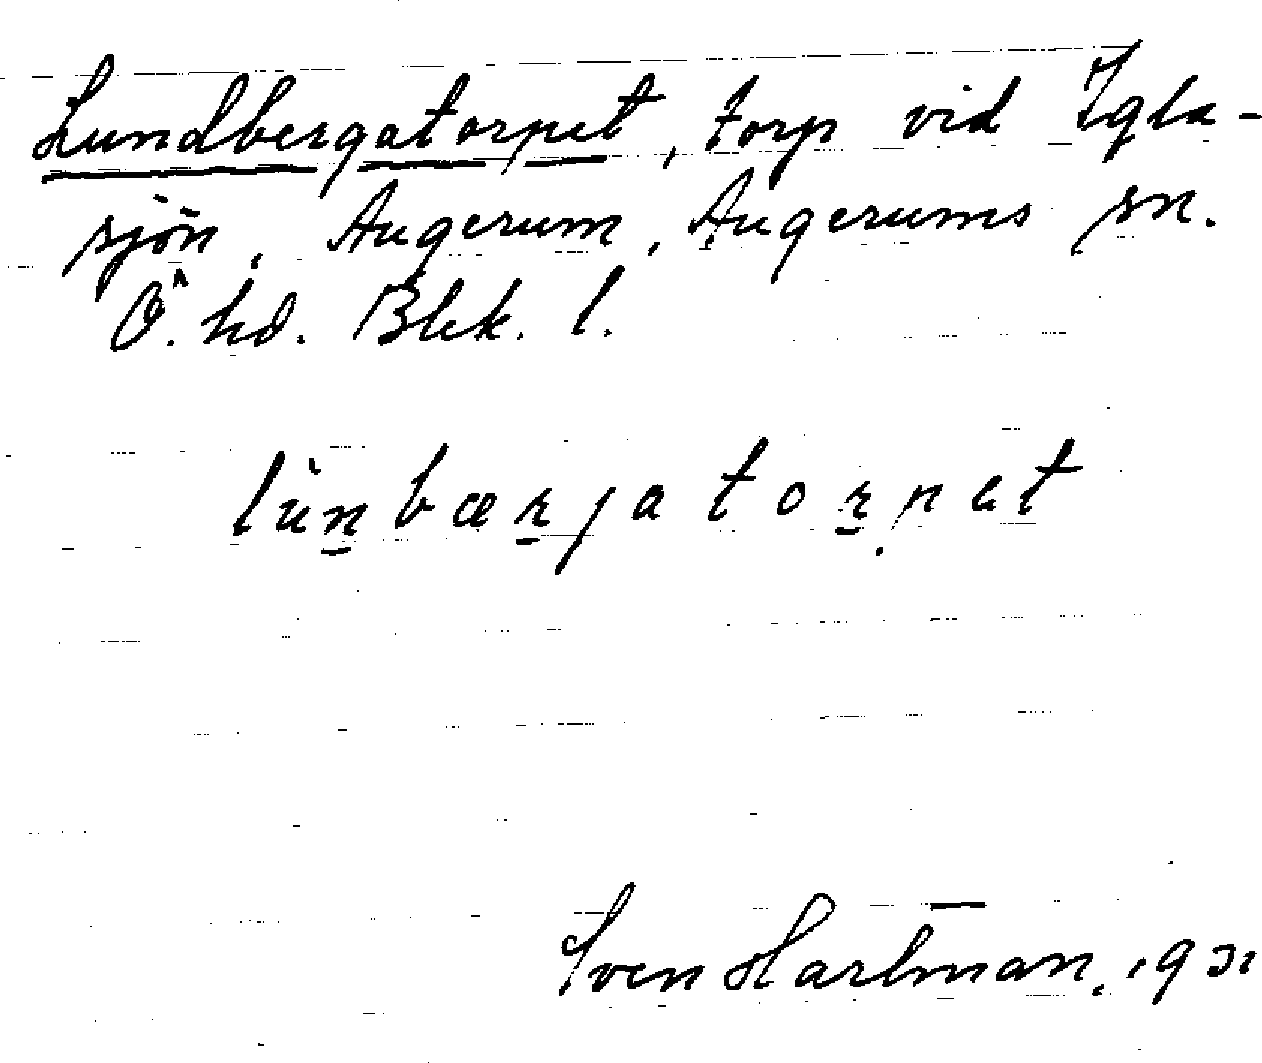 Lundbergatorpet, torp vid Igla-
sjön, Augerum, Augerums sn.
Ö. hd. Blek. l.
lùn̲bær̲jator̲pet
Sven Hartman, 1931